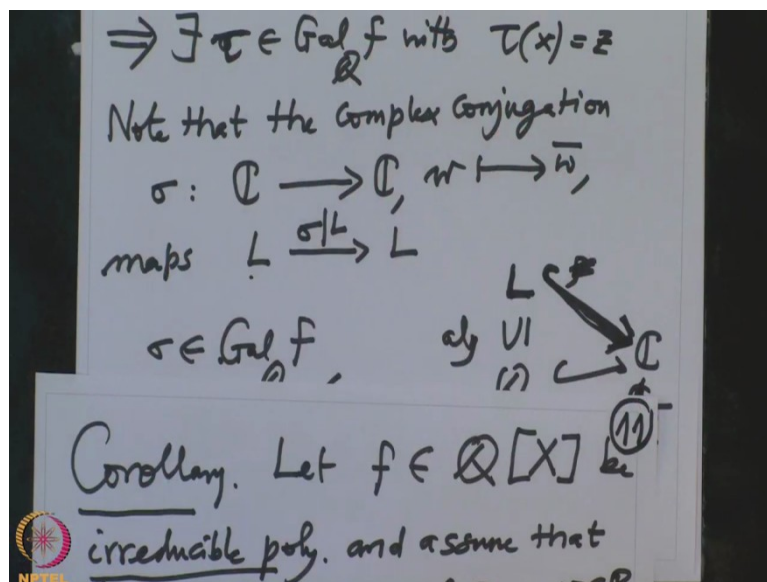 ⇒ ∃ τ ∈ Gal_ℚ f with τ(x) = z
Note that the Complex Conjugation
σ : ℂ → ℂ, w ↦ w̄,
maps L —σ|L→ L
L
σ ∈ Gal f,
alg UI
ℂ
11
Corollary. Let f ∈ ℚ[X] be
irreducible poly. and assume that
NPTEL